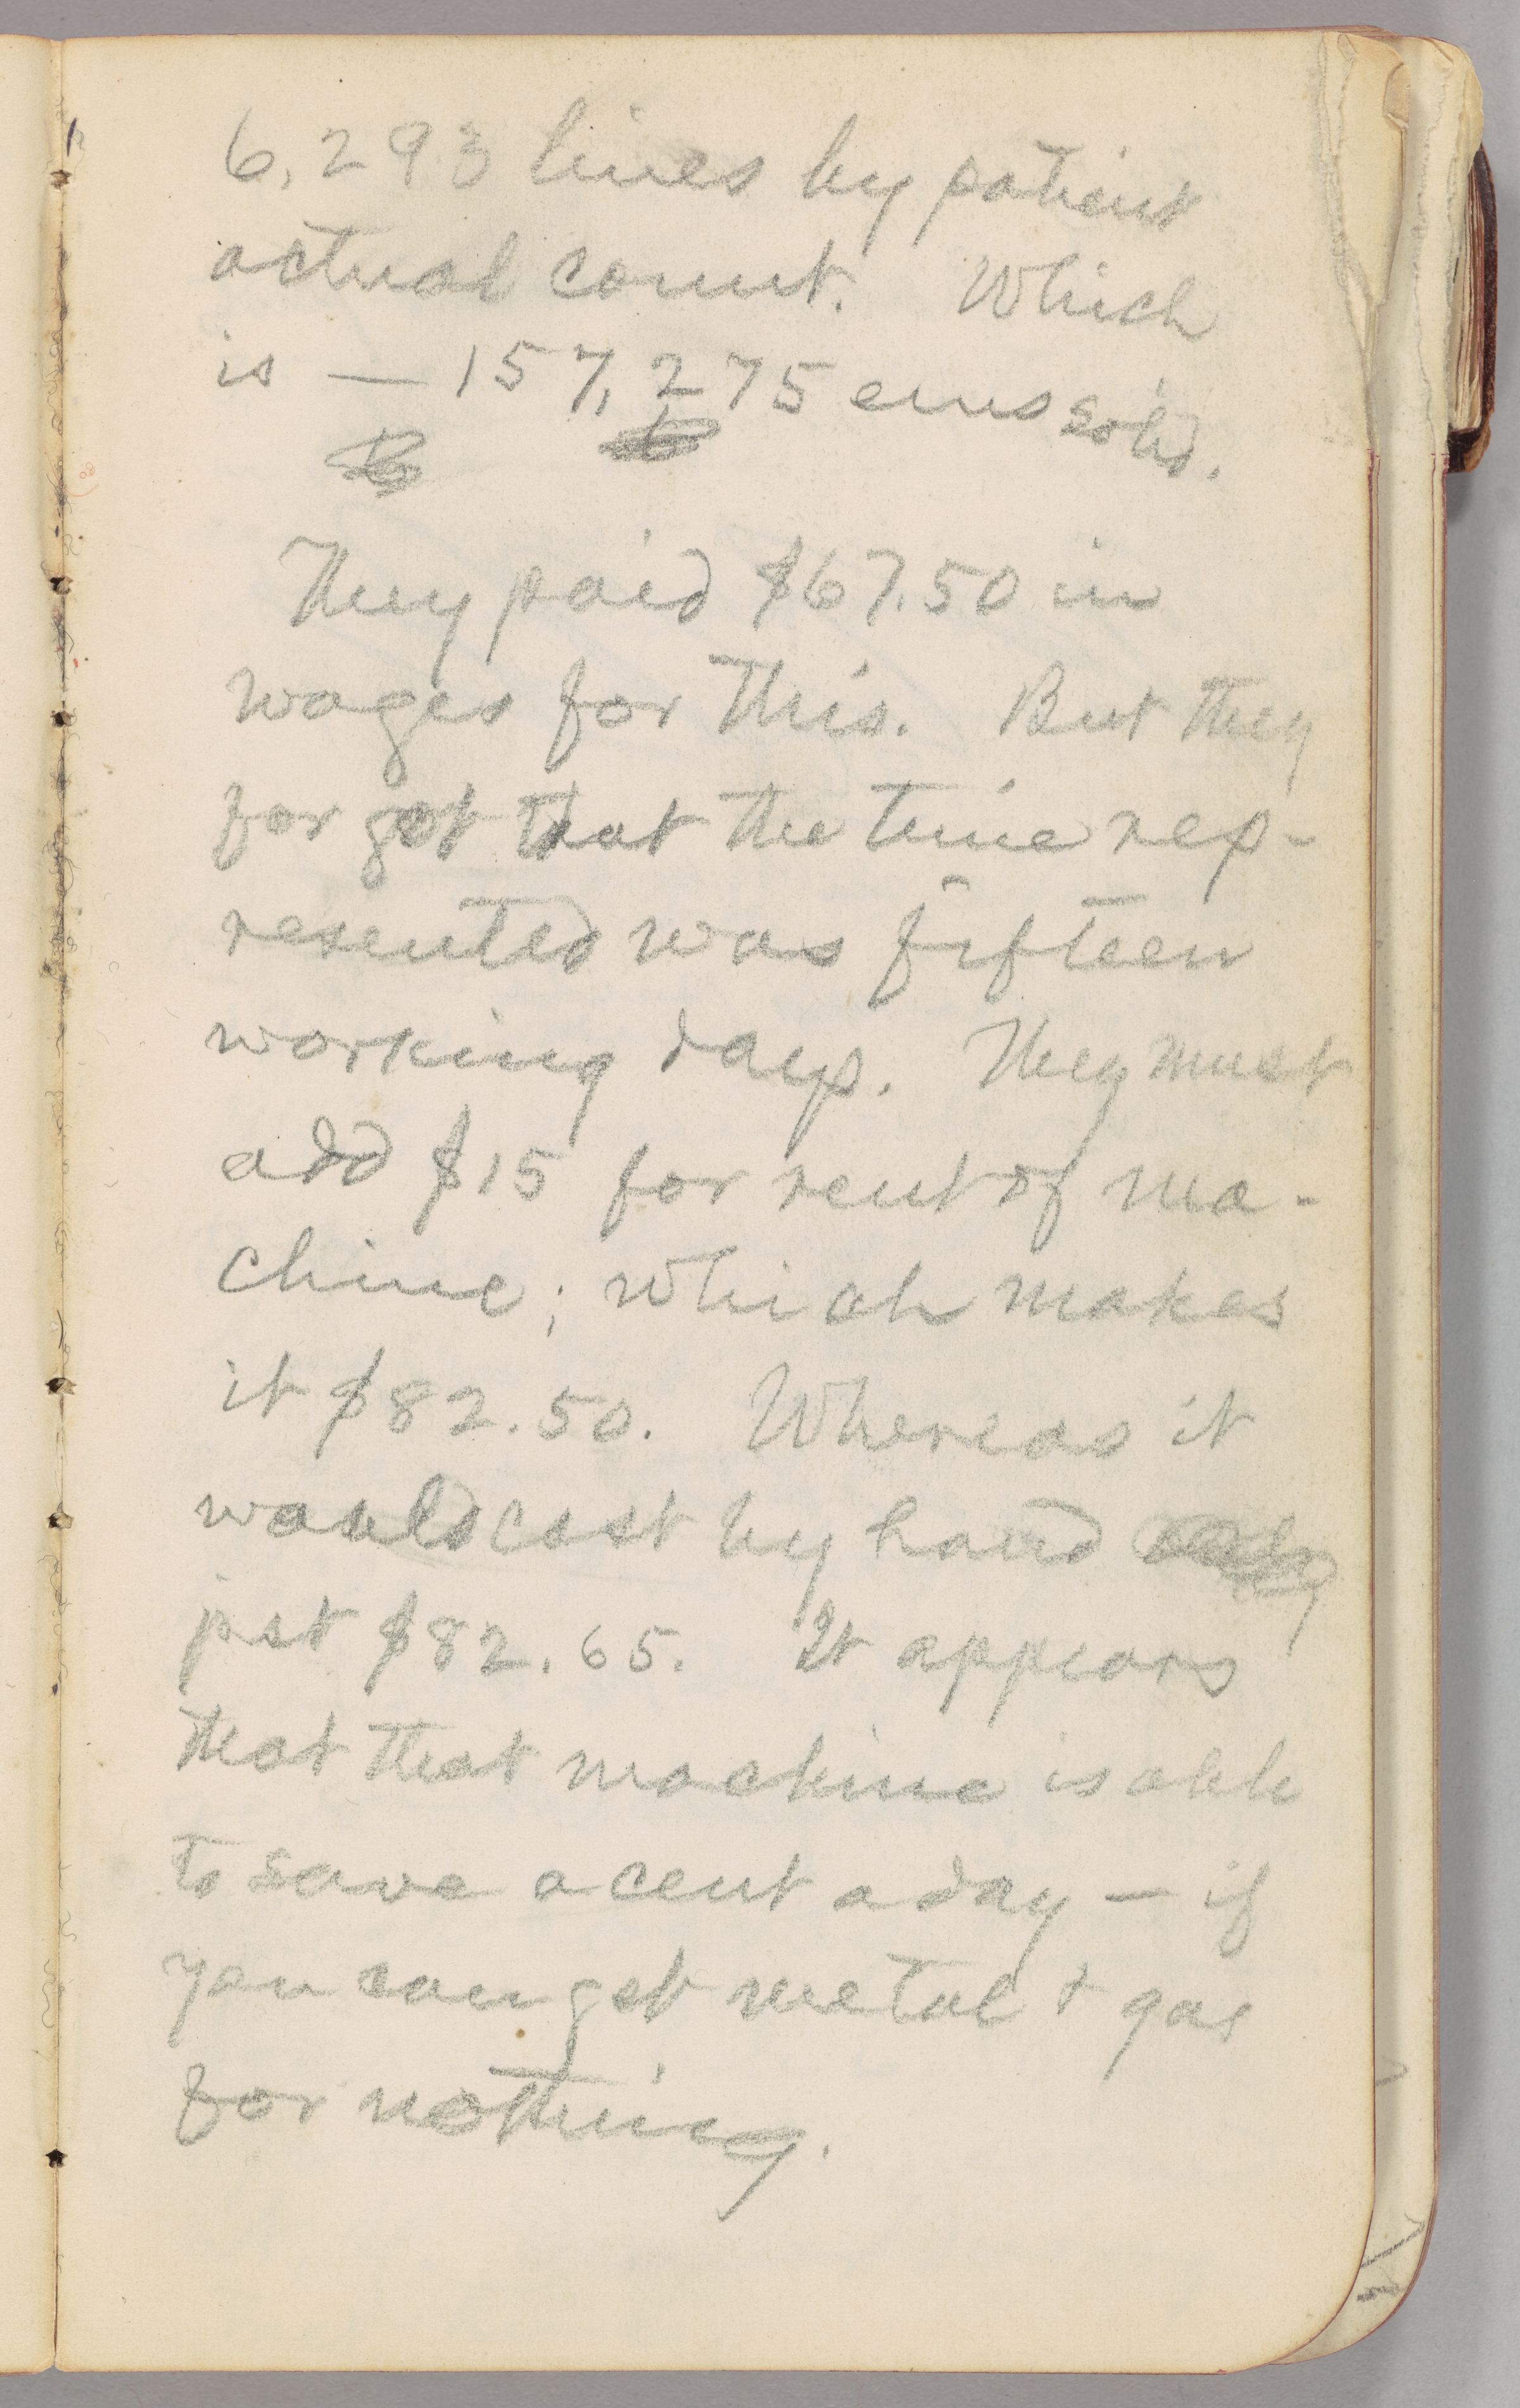 6,293 lines by patient
actual count. Which
is — 157,275 ems solid.
They paid $67.50 in
wages for this. But they
forgot that the time rep-
resented was fifteen
working days. They must
add $15 for rent of ma-
chine; which makes
it $82.50. Whereas it
would cost by hand
just $82.65. It appears
that that machine is able
to save a cent a day — if
you can get metal + gas
for nothing.